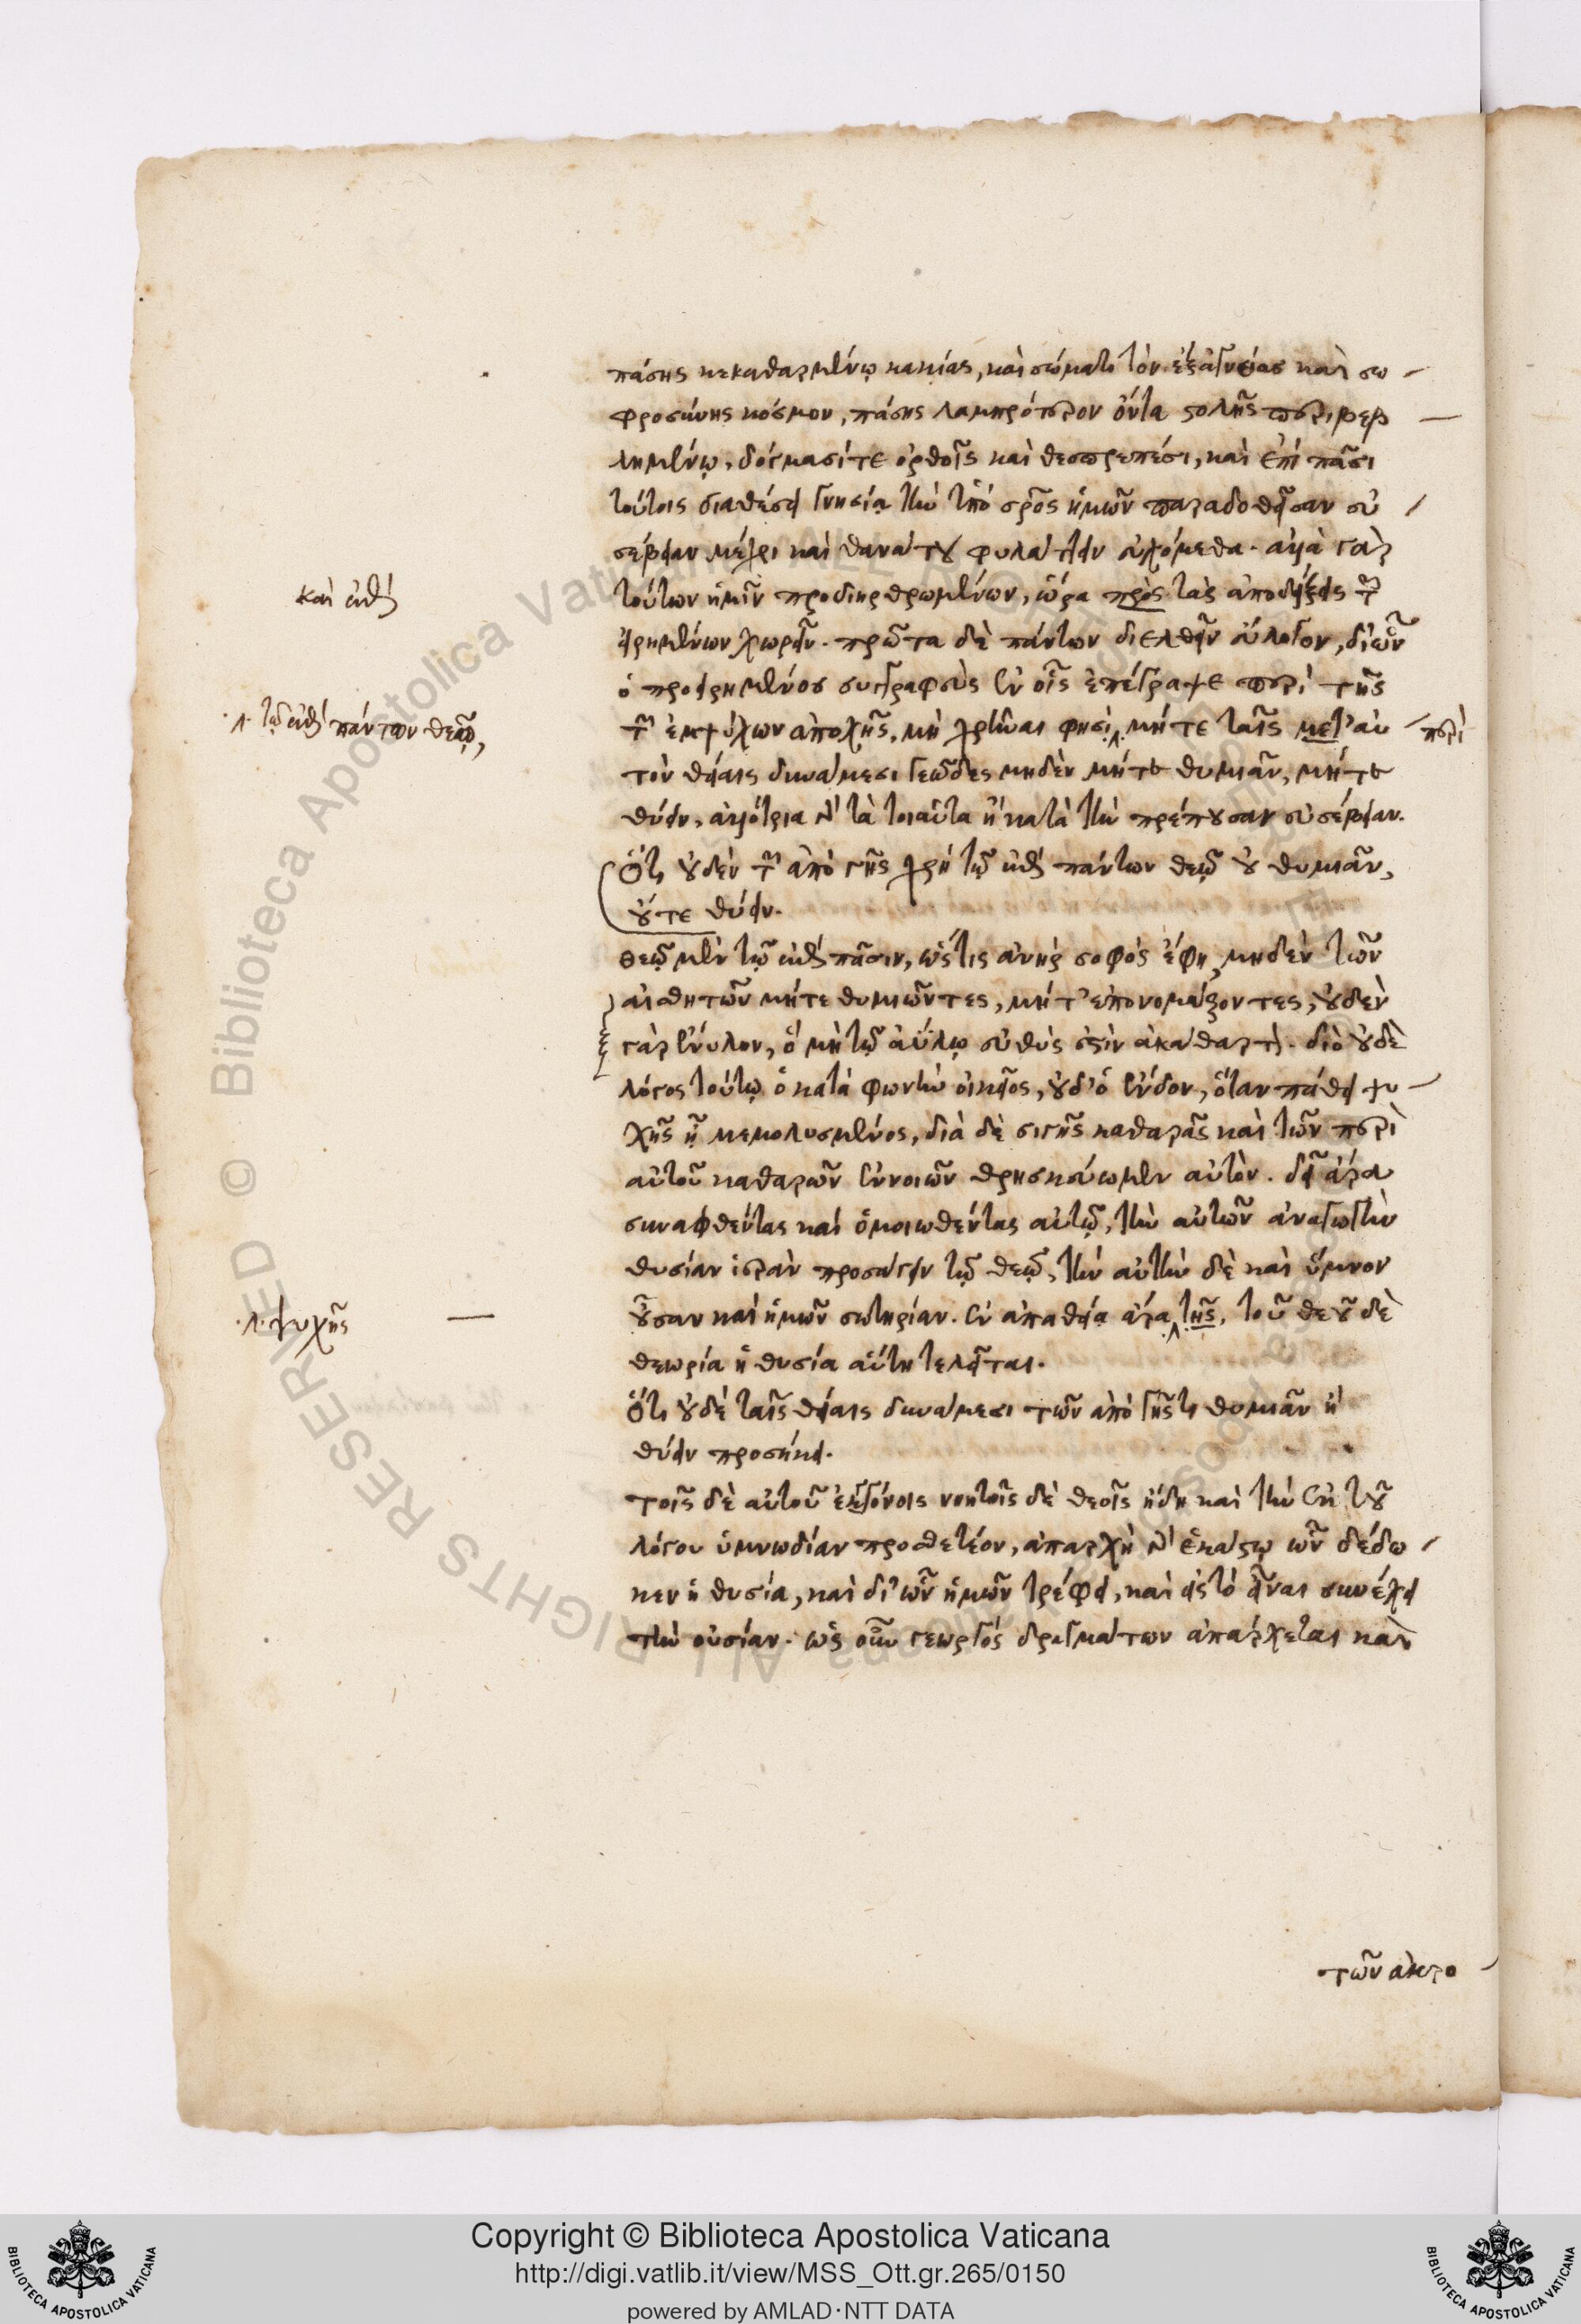 πάσης κεκαθαρμένῳ κακίας, καὶ σώματι τὸν ἐξ ἁγνείας καὶ σω
φροσύνης κόσμον, πάσης λαμπρότερον ὄντα στολῆς περιβεβ
λημένῳ, δόγμασί τε ὀρθοῖς καὶ θεοπρεπέσι, καὶ ἐπὶ πᾶσι
τούτοις διαθέσει γνησίᾳ τὴν ὑπὸ σρος ἡμῶν παραδοθεῖσαν εὐ
σέβειαν μέχρι καὶ θανάτου φυλάττειν εὐχόμεθα. ἀλλὰ γὰρ
τούτων ἡμῖν προδιηρθρωμένων, ὥρα πρὸς τὰς ἀποδείξεις τῶν
εἰρημένων χωρεῖν. πρῶτα δὲ πάντων διελθεῖν εὔλογον, δι' ὧν
ὁ προειρημένος συγγραφεὺς ἐν οἷς ἐπέγραψε περὶ τῆς
τῶν ἐμψύχων ἀποχῆς, μὴ χρῆναι φησὶ, μήτε ταῖς μετ' αὐ
τὸν θείαις δυνάμεσι γεῶδες μηδὲν μήτε θυμιᾶν, μήτε
θύειν, ἀλλότρια δ' τὰ τοιαῦτα ἢ κατὰ τὴν πρέπουσαν εὐσέβειαν.
Ὅτι οὐδὲν τῶν ἀπὸ γῆς χρὴ τῷ ἐπὶ πάντων θεῷ οὐ θυμιᾶν,
οὔτε θύειν.
θεῷ μὲν τῷ ἐπὶ πᾶσιν, ὥς τις ἀνὴρ σοφὸς ἔφη, μηδὲν τῶν
αἰσθητῶν μήτε θυμιῶντες, μήτ' ἐπονομάζοντες, οὐδὲν
γὰρ ἔνυλον, ὃ μὴ τῷ ἀύλῳ εὐθύς ἐστὶν ἀκάθαρτον. διὸ οὐδὲ
λόγος τούτῳ ὁ κατὰ φωνὴν οἰκεῖος, οὐδ' ὁ ἔνδον, ὅταν πάθει ψυ
χῆς ᾖ μεμολυσμένος, διὰ δὲ σιγῆς καθαρᾶς καὶ τῶν περὶ
αὐτοῦ καθαρῶν ἐννοιῶν θρησκεύωμεν αὐτόν. δεῖ ἄρα
συναφθέντας καὶ ὁμοιωθέντας αὐτῷ, τὴν αὐτῶν ἀναγωγὴν
θυσίαν ἱερὰν προσάγειν τῷ θεῷ, τὴν αὐτὴν δὲ καὶ ὕμνον
οὖσαν καὶ ἡμῶν σωτηρίαν. ἐν ἀπαθείᾳ ἄρα τῆς, τοῦ θεοῦ δὲ
θεωρίᾳ ἡ θυσία αὕτη τελεῖται.
Ὅτι οὐδὲ ταῖς θείαις δυνάμεσι τῶν ἀπὸ γῆς τι θυμιᾶν ἢ
θύειν προσήκει.
τοῖς δὲ αὐτοῦ ἐκγόνοις νοητοῖς δὲ θεοῖς ἤδη καὶ τὴν ἐκ τοῦ
λόγου ὑμνῳδίαν προσθετέον, ἀπαρχὴ δ' ἑκάστῳ ὧν δέδω
κεν ἡ θυσία, καὶ δι' ὧν ἡμῶν τρέφει, καὶ εἰς τὸ εἶναι συνέχει
τὴν οὐσίαν. ὡς οὖν γεωργὸς δραγμάτων ἀπάρχεται καὶ
τῶν ἀκρο
καὶ ἐπὶ
.λ. τῷ ἐπὶ πάντων θεῷ,
περὶ
.λ. ψυχῆς
Copyright © Biblioteca Apostolica Vaticana
http://digi.vatlib.it/view/MSS_Ott.gr.265/0150
powered by AMLAD·NTT DATA
BIBLIOTECA APOSTOLICA VATICANA
BIBLIOTECA APOSTOLICA VATICANA